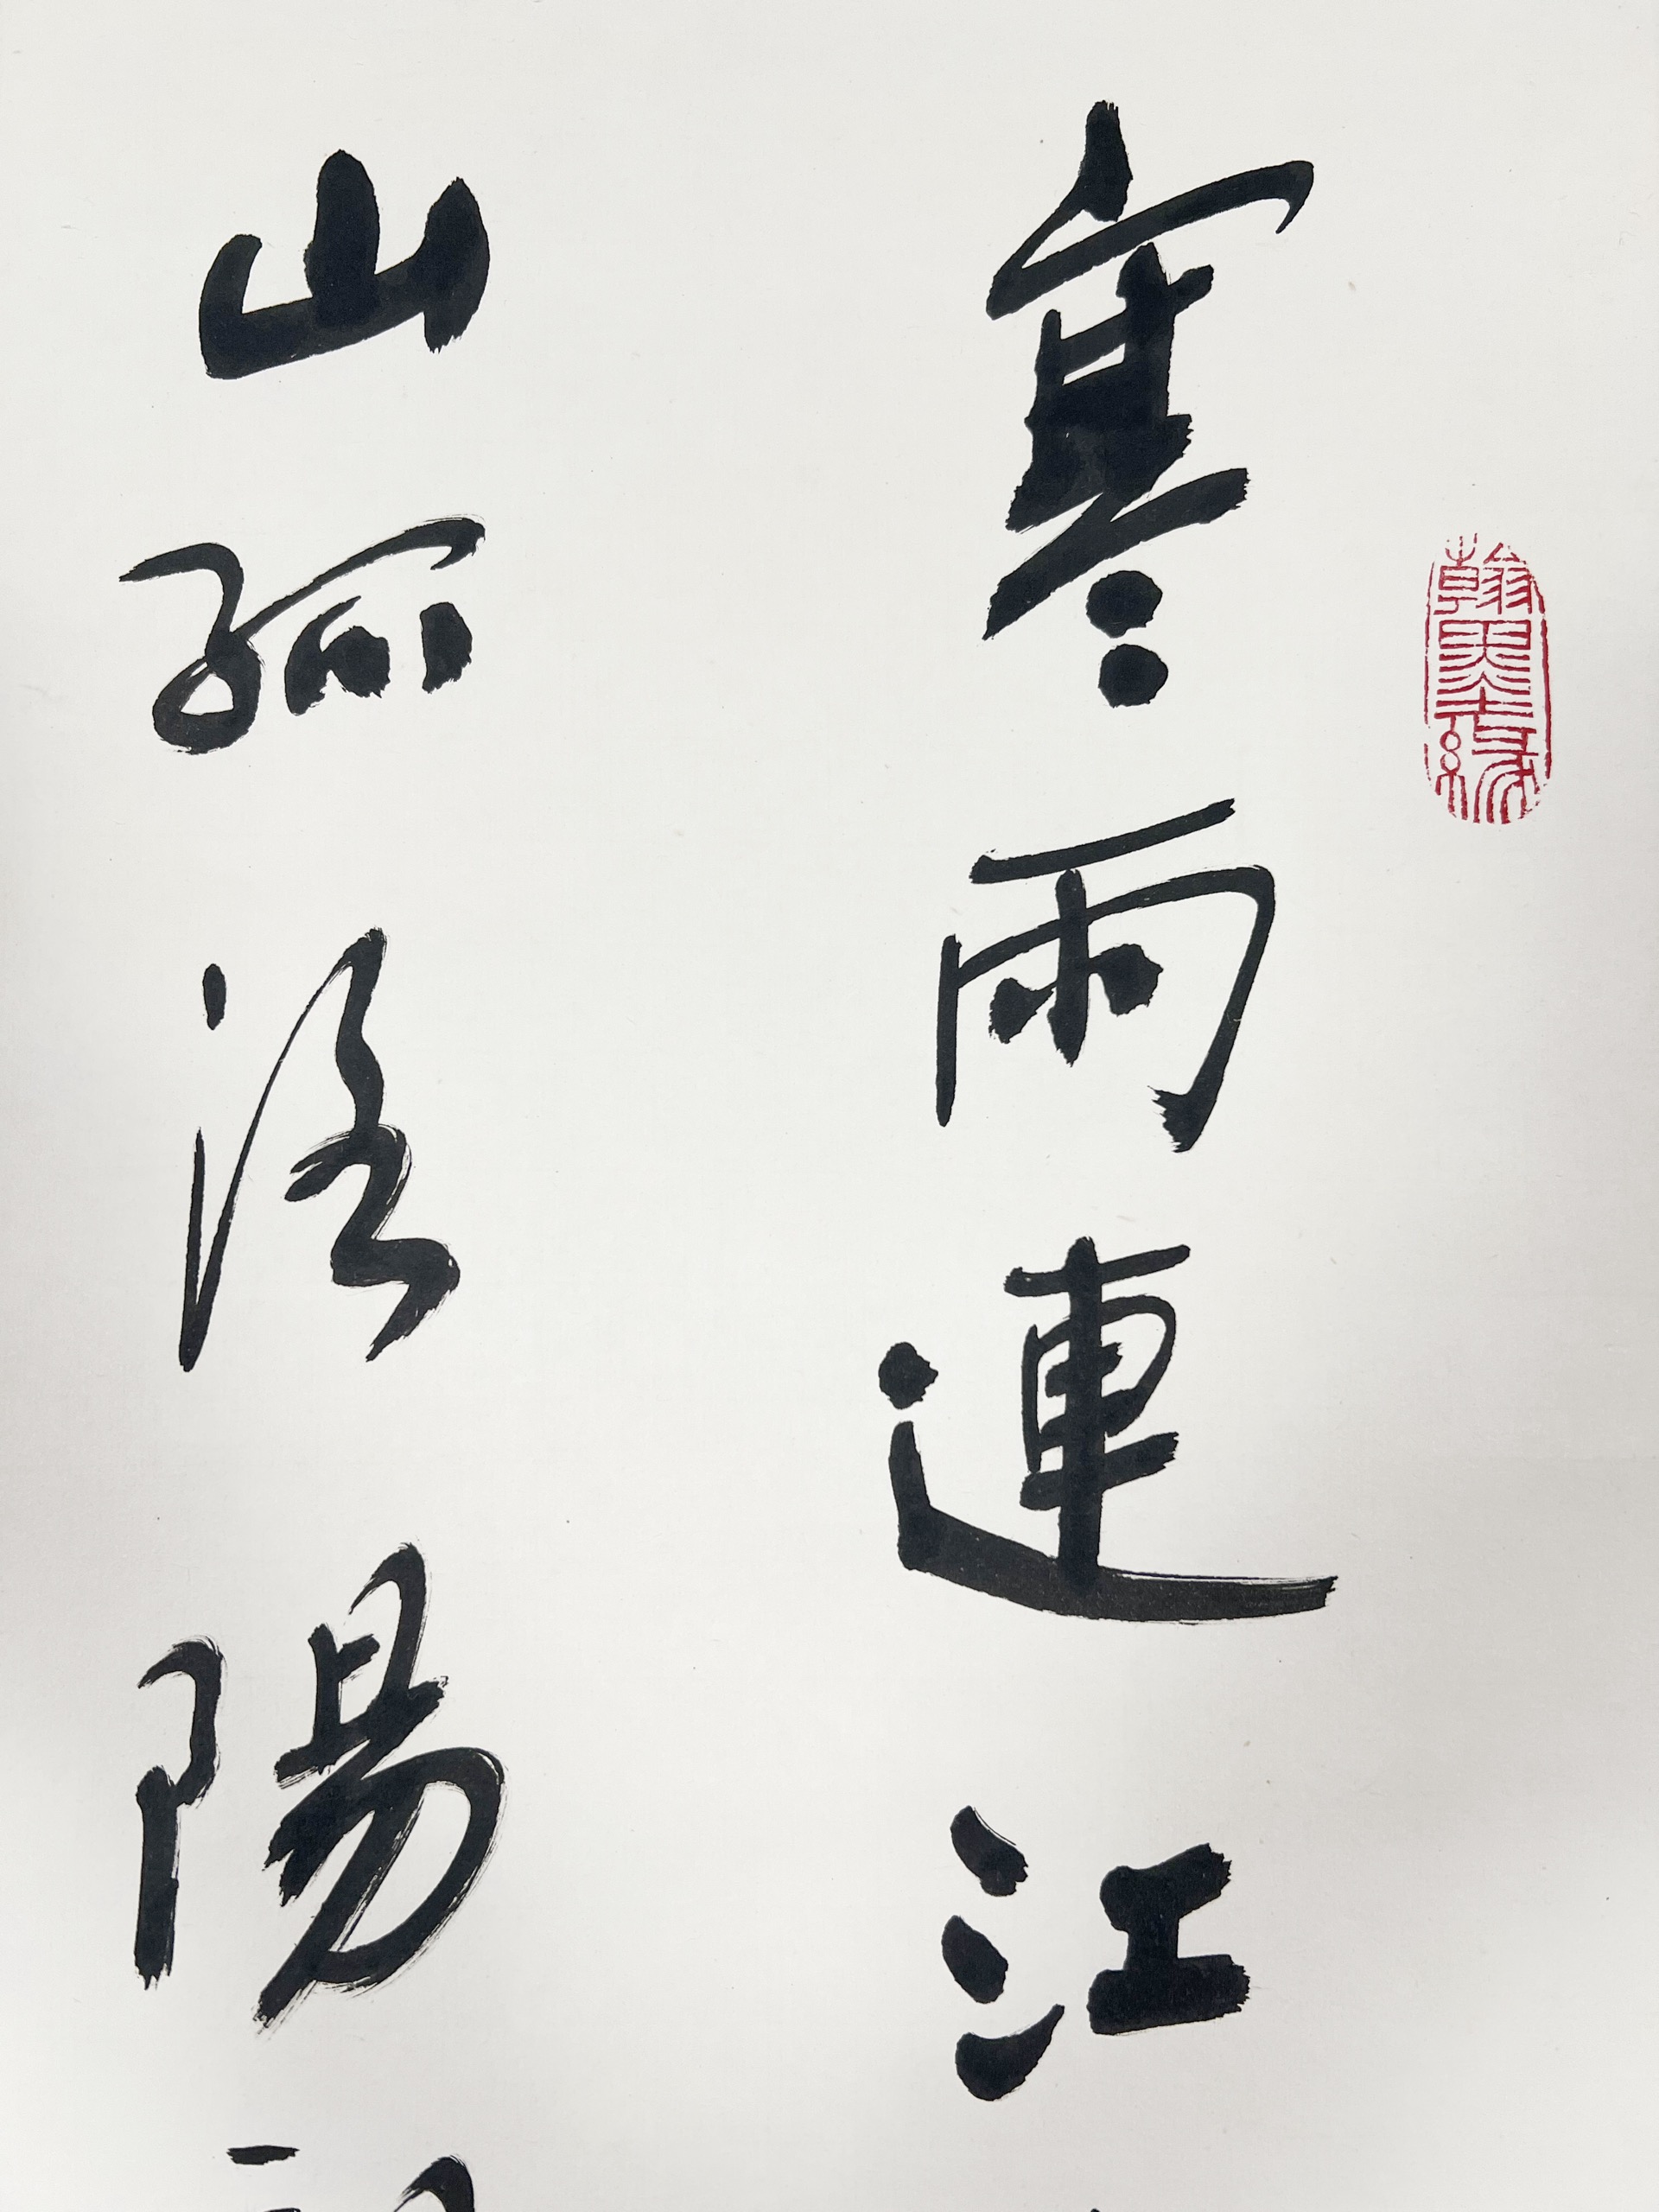 寒雨連江
山孤洛陽
翰墨結緣